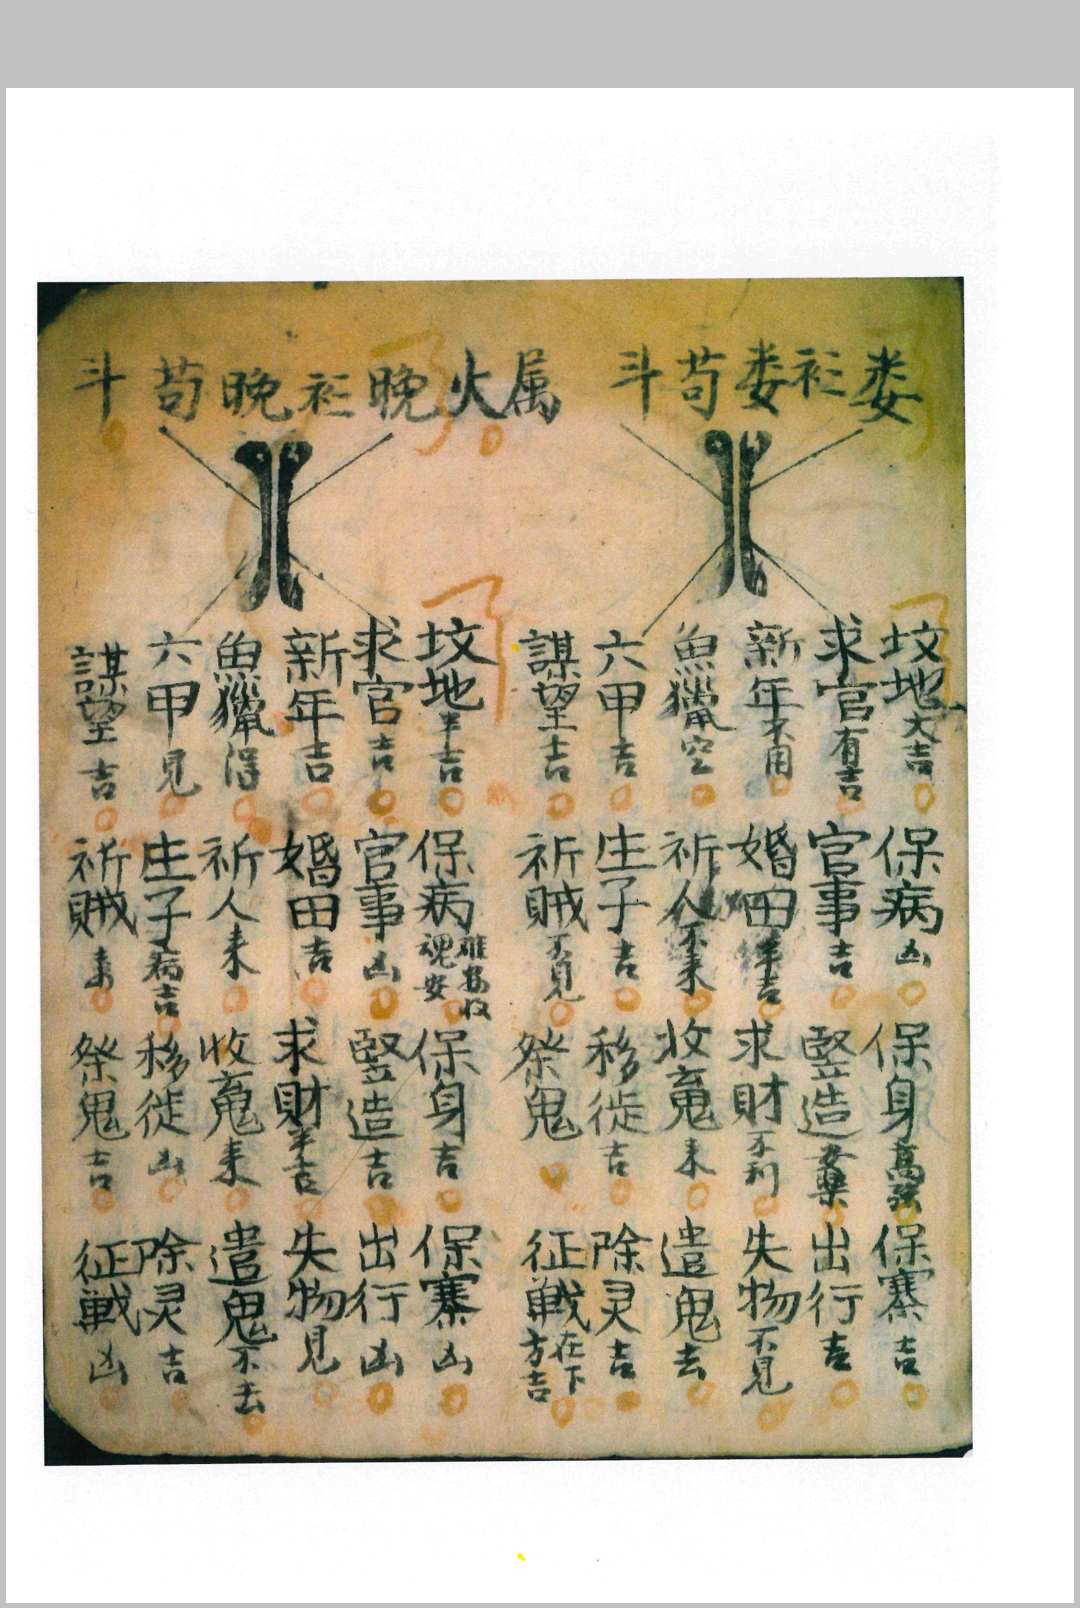 娄衫娄苟斗
坟地大吉 保病凶 保身高强 保寨吉
求官有吉 官事吉 竪造安樂 出行吉
新年不用 婚田半吉 求財不利 失物不見
魚獵空 祈人不来 收䰟来 遣鬼去
六甲吉 生子吉 移徙吉 除灵吉
謀望吉 祈賊不見 祭鬼 征戦在下方吉
属火晚衫晚苟斗
坟地半吉 保病魂安 保身吉 保寨凶
求官吉 官事凶 竪造吉 出行凶
新年吉 婚田吉 求財半吉 失物見
魚獵得 祈人来 收䰟来 遣鬼不去
六甲見 生子病吉 移徙凶 除灵吉
謀望吉 祈賊来 祭鬼吉 征戦凶